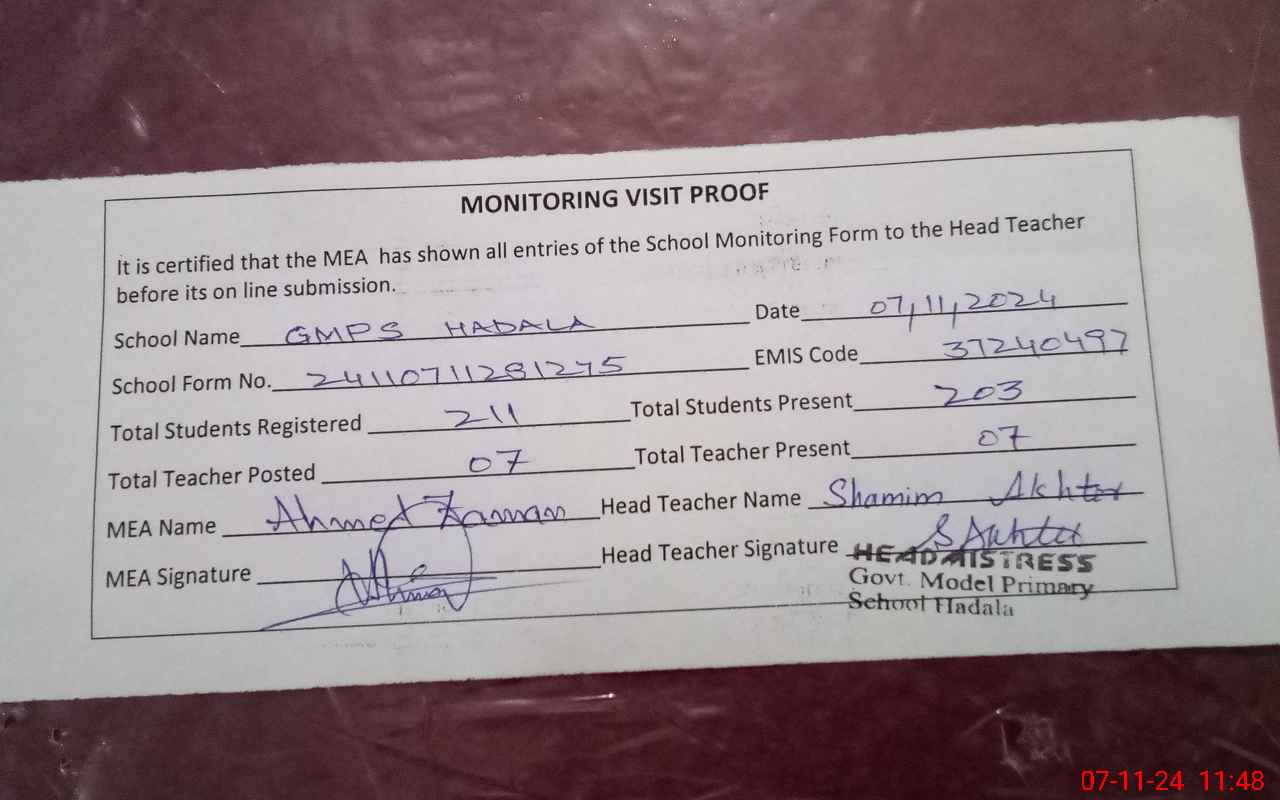 MONITORING VISIT PROOF
It is certified that the MEA has shown all entries of the School Monitoring Form to the Head Teacher
before its on line submission.
School Name GMPS HADALA Date 07,11,2024
School Form No. 24110711281275 EMIS Code 37240497
Total Students Registered 211 Total Students Present 203
Total Teacher Posted 07 Total Teacher Present 07
MEA Name Ahmed Zaman Head Teacher Name Shamim Akhter
MEA Signature Head Teacher Signature S Akhter
HEADMISTRESS
Govt. Model Primary
School Hadala
07-11-24 11:48